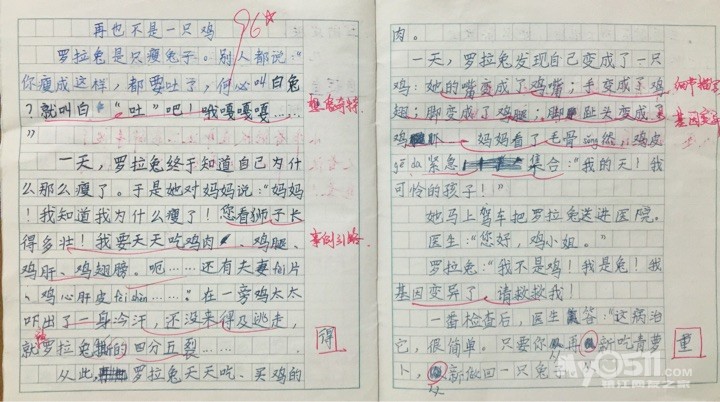 再也不是一只鸡
96☆
罗拉兔是只瘦兔子。别人都说:“
你瘦成这样,都要吐了,何必叫白兔
?就叫白“吐”吧!哦嘎嘎嘎……
”
想象奇特
一天,罗拉兔终于知道自己为什
么那么瘦了。于是她对妈妈说:“妈妈
!我知道我为什么瘦了!您看狮子长
得多壮!我要天天吃鸡肉、鸡腿、
鸡肝、鸡翅膀。呃……还有夫妻fèi片
、鸡心肝皮……。”在一旁鸡太太
吓出了一身冷汗,还没来得及逃走,
就被罗拉兔撕的四分五裂……
得
从此,罗拉兔天天吃、买鸡的
肉。
一天,罗拉兔发现自己变成了一只
鸡:她的嘴变成了鸡嘴;手变成了鸡
翅;脚变成了鸡腿;脚趾头变成了
鸡 妈妈看了毛骨sǒng然,鸡皮
gē da紧急集合:“我的天!我
可怜的孩子!”
细节描写
基因变异
她马上驾车把罗拉兔送进医院。
医生:“您好,鸡小姐。”
罗拉兔:“我不是鸡!我是兔!我
基因变异了,请救救我!
一番检查后,医生答:“这病治
它,很简单。只要你再新吃青萝
卜,新做回一只兔子
重